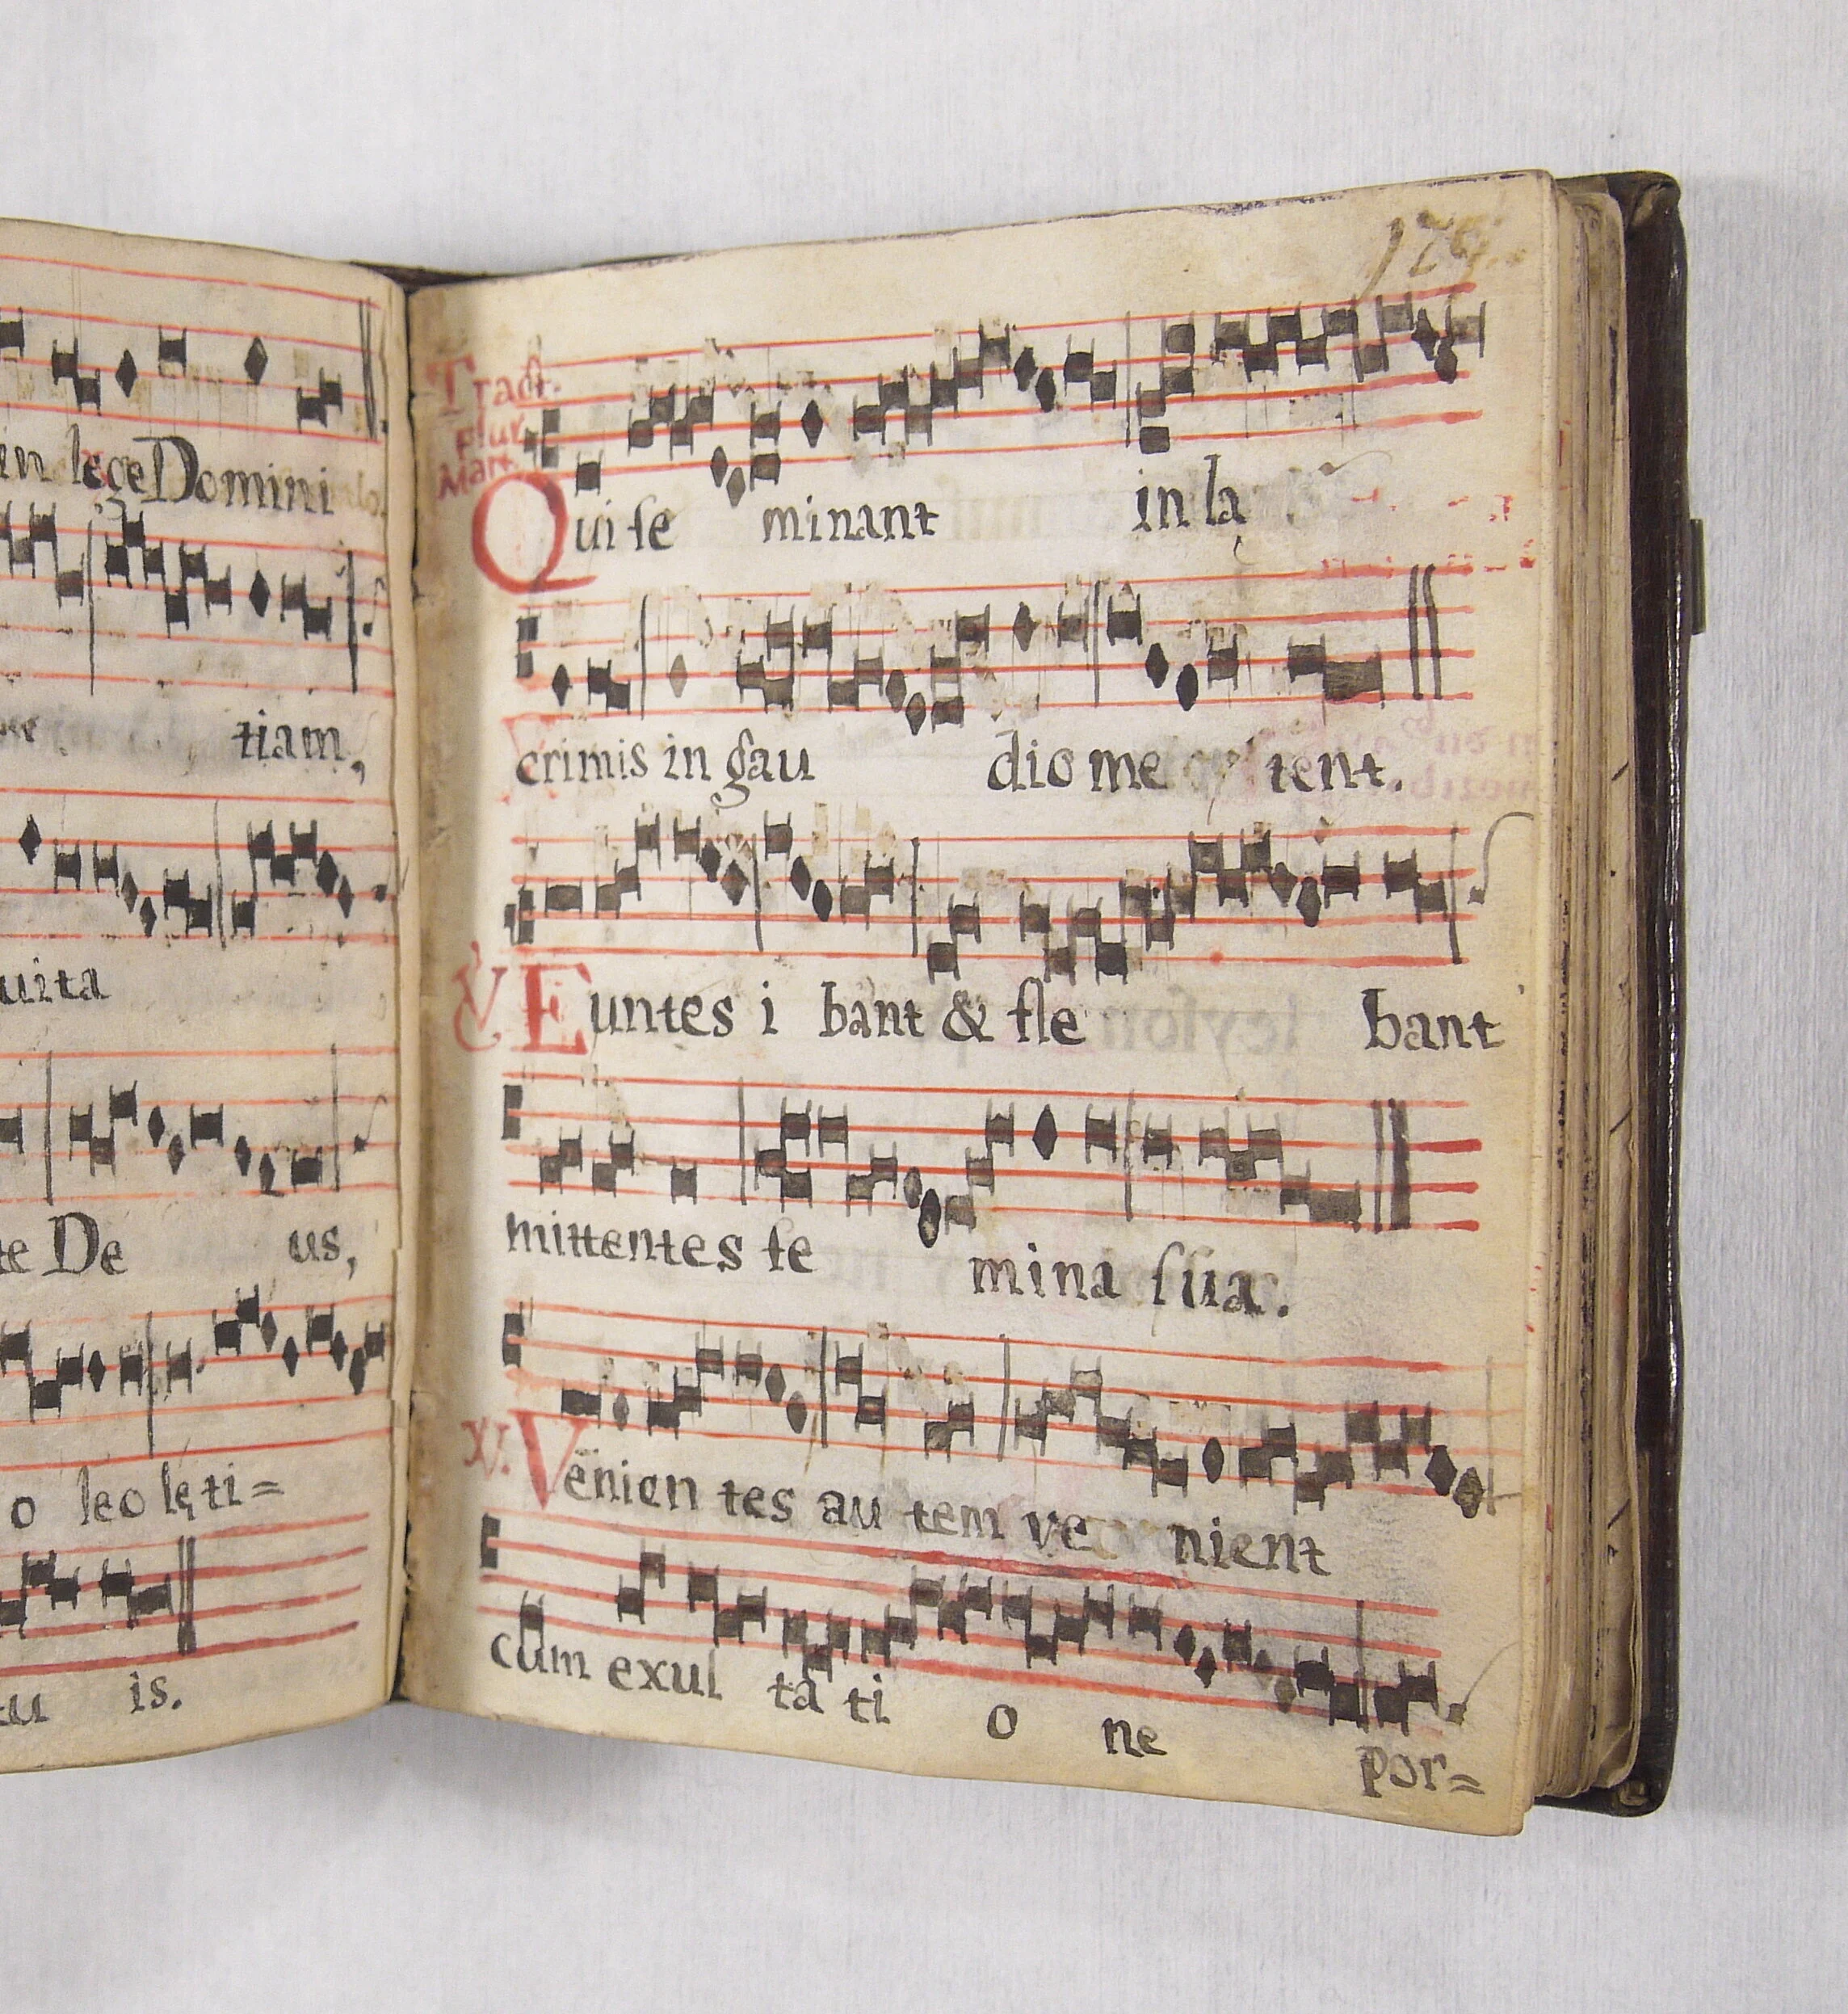 in lege Domini
tiam,
uita
te De us,
o leo lęti=
tu is.
179.
Tract.
Plur.
Mart.
Qui ſe minant in la
crimis in gau dio me tent.
℣ Euntes i bant & fle bant
mittentes ſe mina ſua.
℣. Venien tes au tem ve nient
cum exul ta ti o ne por=